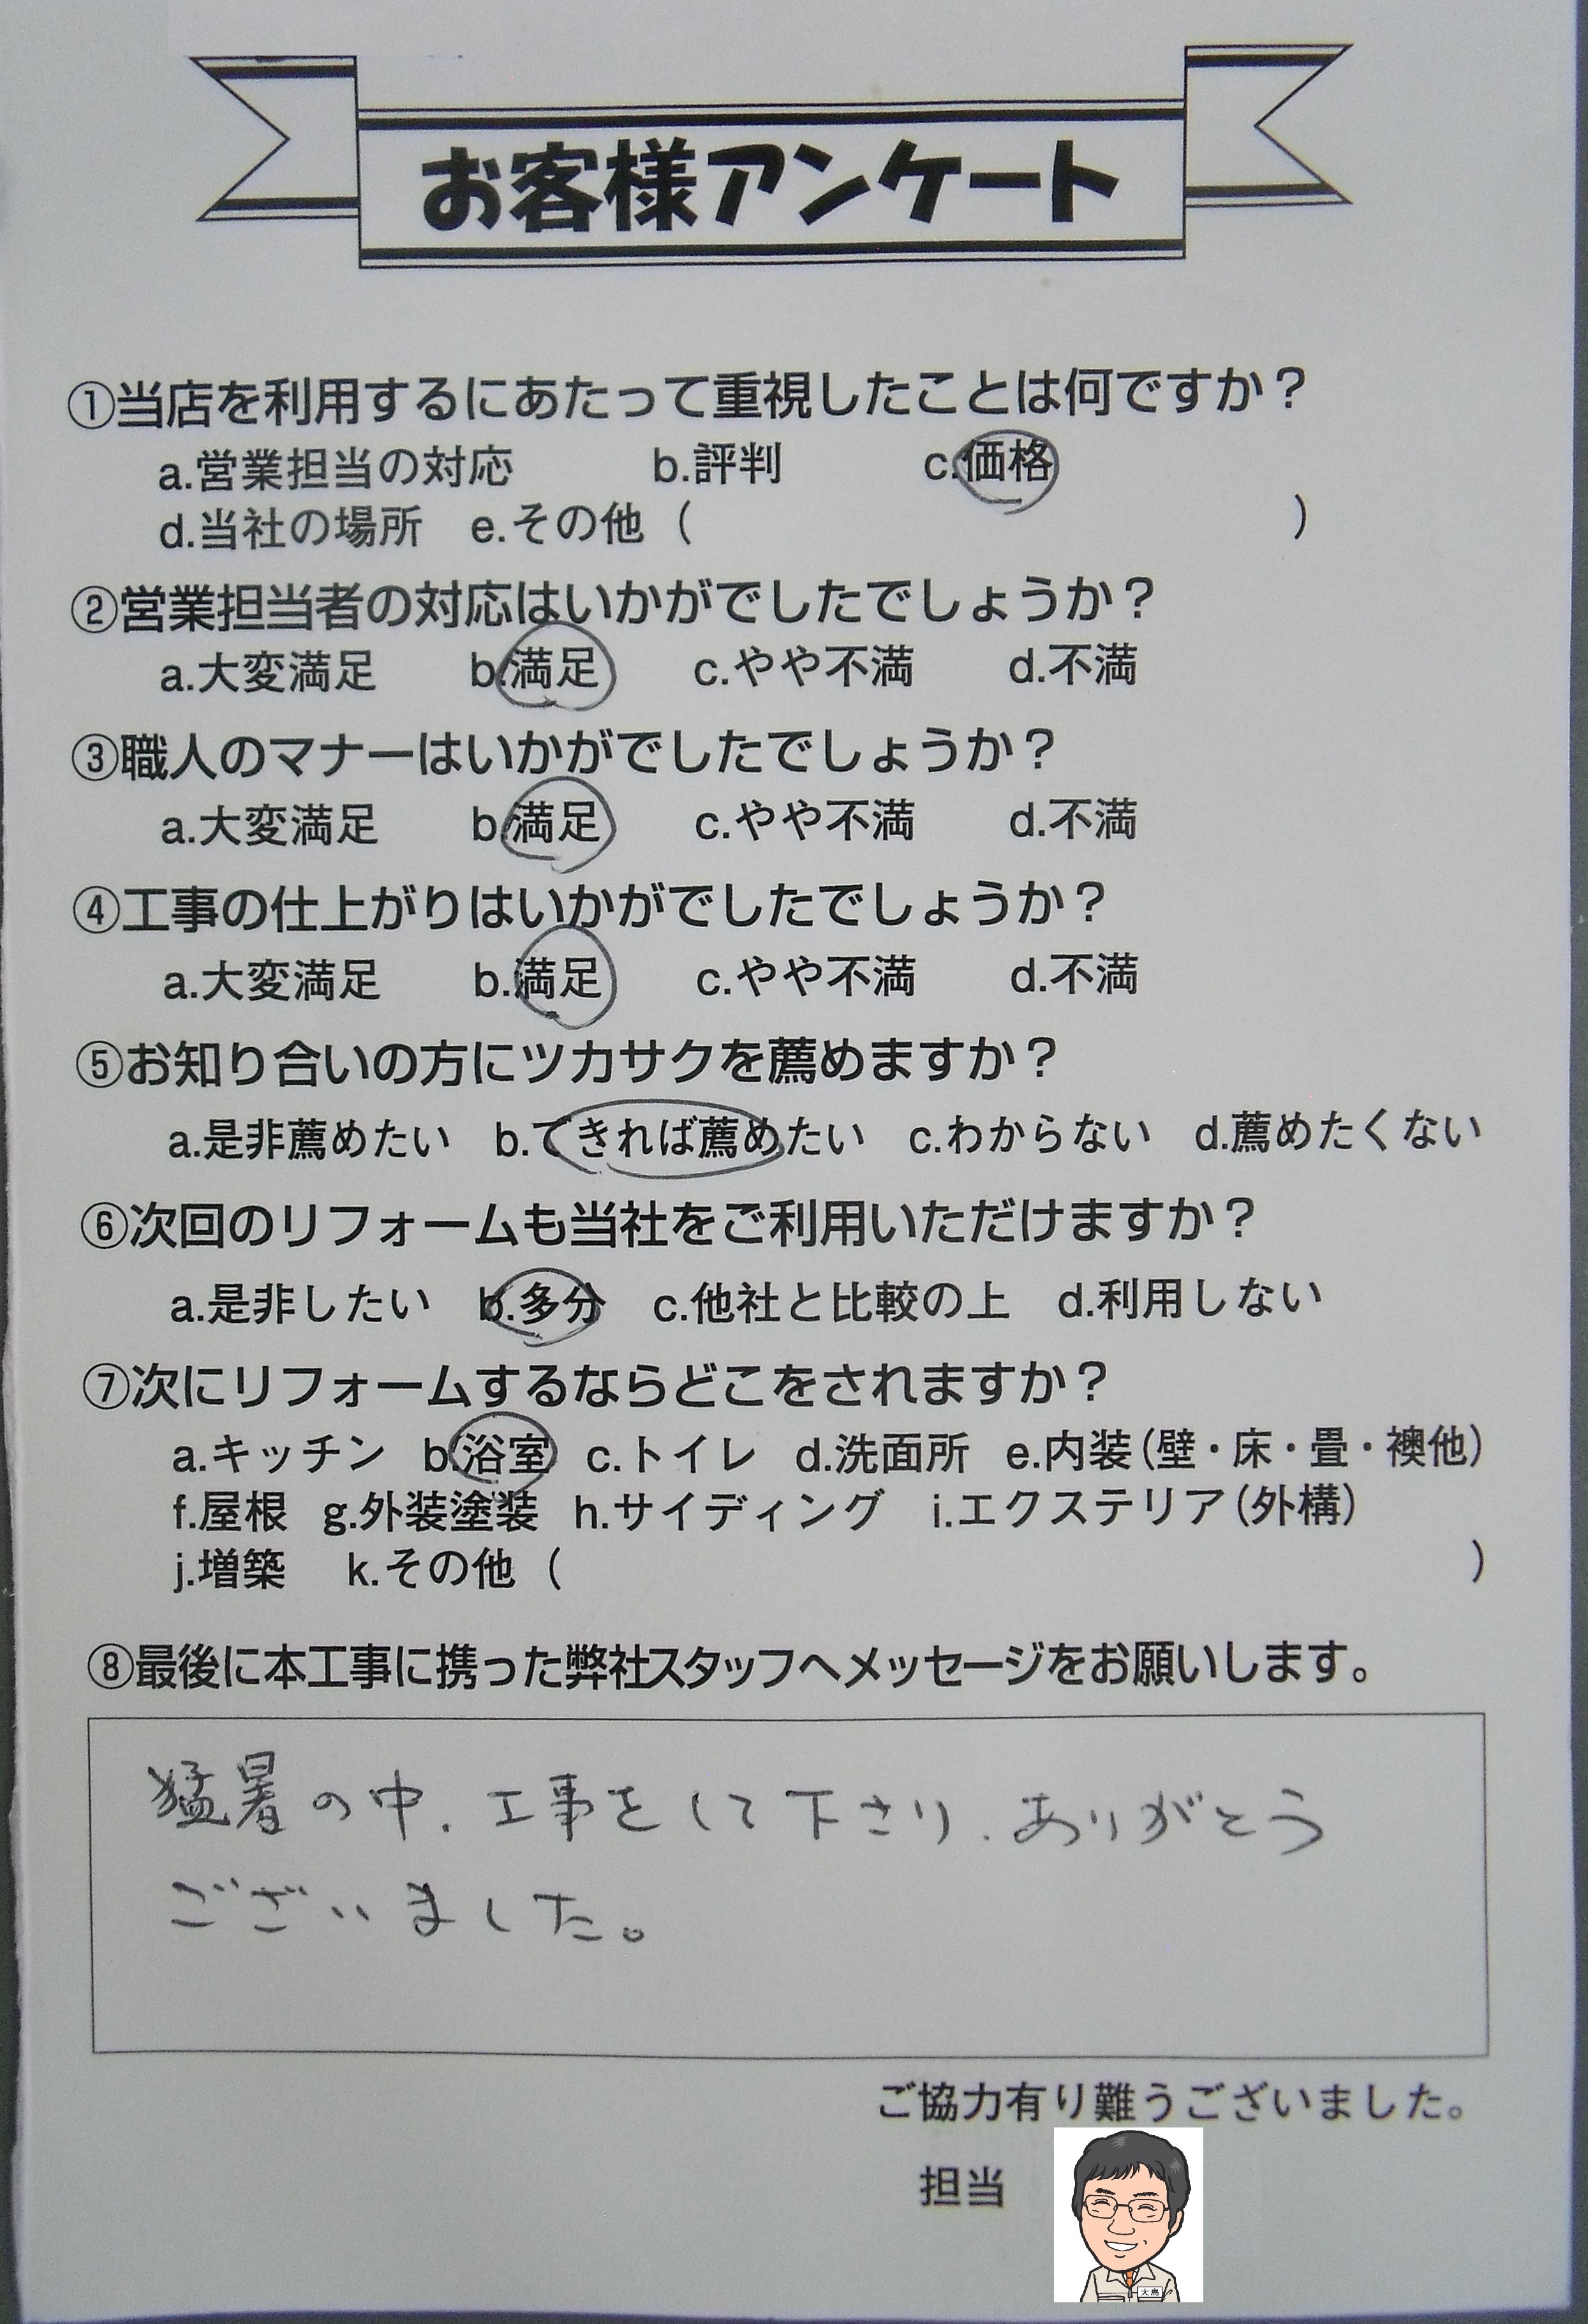 お客様アンケート
①当店を利用するにあたって重視したことは何ですか？
a.営業担当の対応　b.評判　c.価格
d.当社の場所　e.その他（　　　）
②営業担当者の対応はいかがでしたでしょうか？
a.大変満足　b.満足　c.やや不満　d.不満
③職人のマナーはいかがでしたでしょうか？
a.大変満足　b.満足　c.やや不満　d.不満
④工事の仕上がりはいかがでしたでしょうか？
a.大変満足　b.満足　c.やや不満　d.不満
⑤お知り合いの方にツカサクを薦めますか？
a.是非薦めたい　b.できれば薦めたい　c.わからない　d.薦めたくない
⑥次回のリフォームも当社をご利用いただけますか？
a.是非したい　b.多分　c.他社と比較の上　d.利用しない
⑦次にリフォームするならどこをされますか？
a.キッチン　b.浴室　c.トイレ　d.洗面所　e.内装（壁・床・畳・襖他）
f.屋根　g.外装塗装　h.サイディング　i.エクステリア（外構）
j.増築　k.その他（　　　）
⑧最後に本工事に携った弊社スタッフへメッセージをお願いします。
猛暑の中、工事をして下さり、ありがとう
ございました。
ご協力有り難うございました。
担当